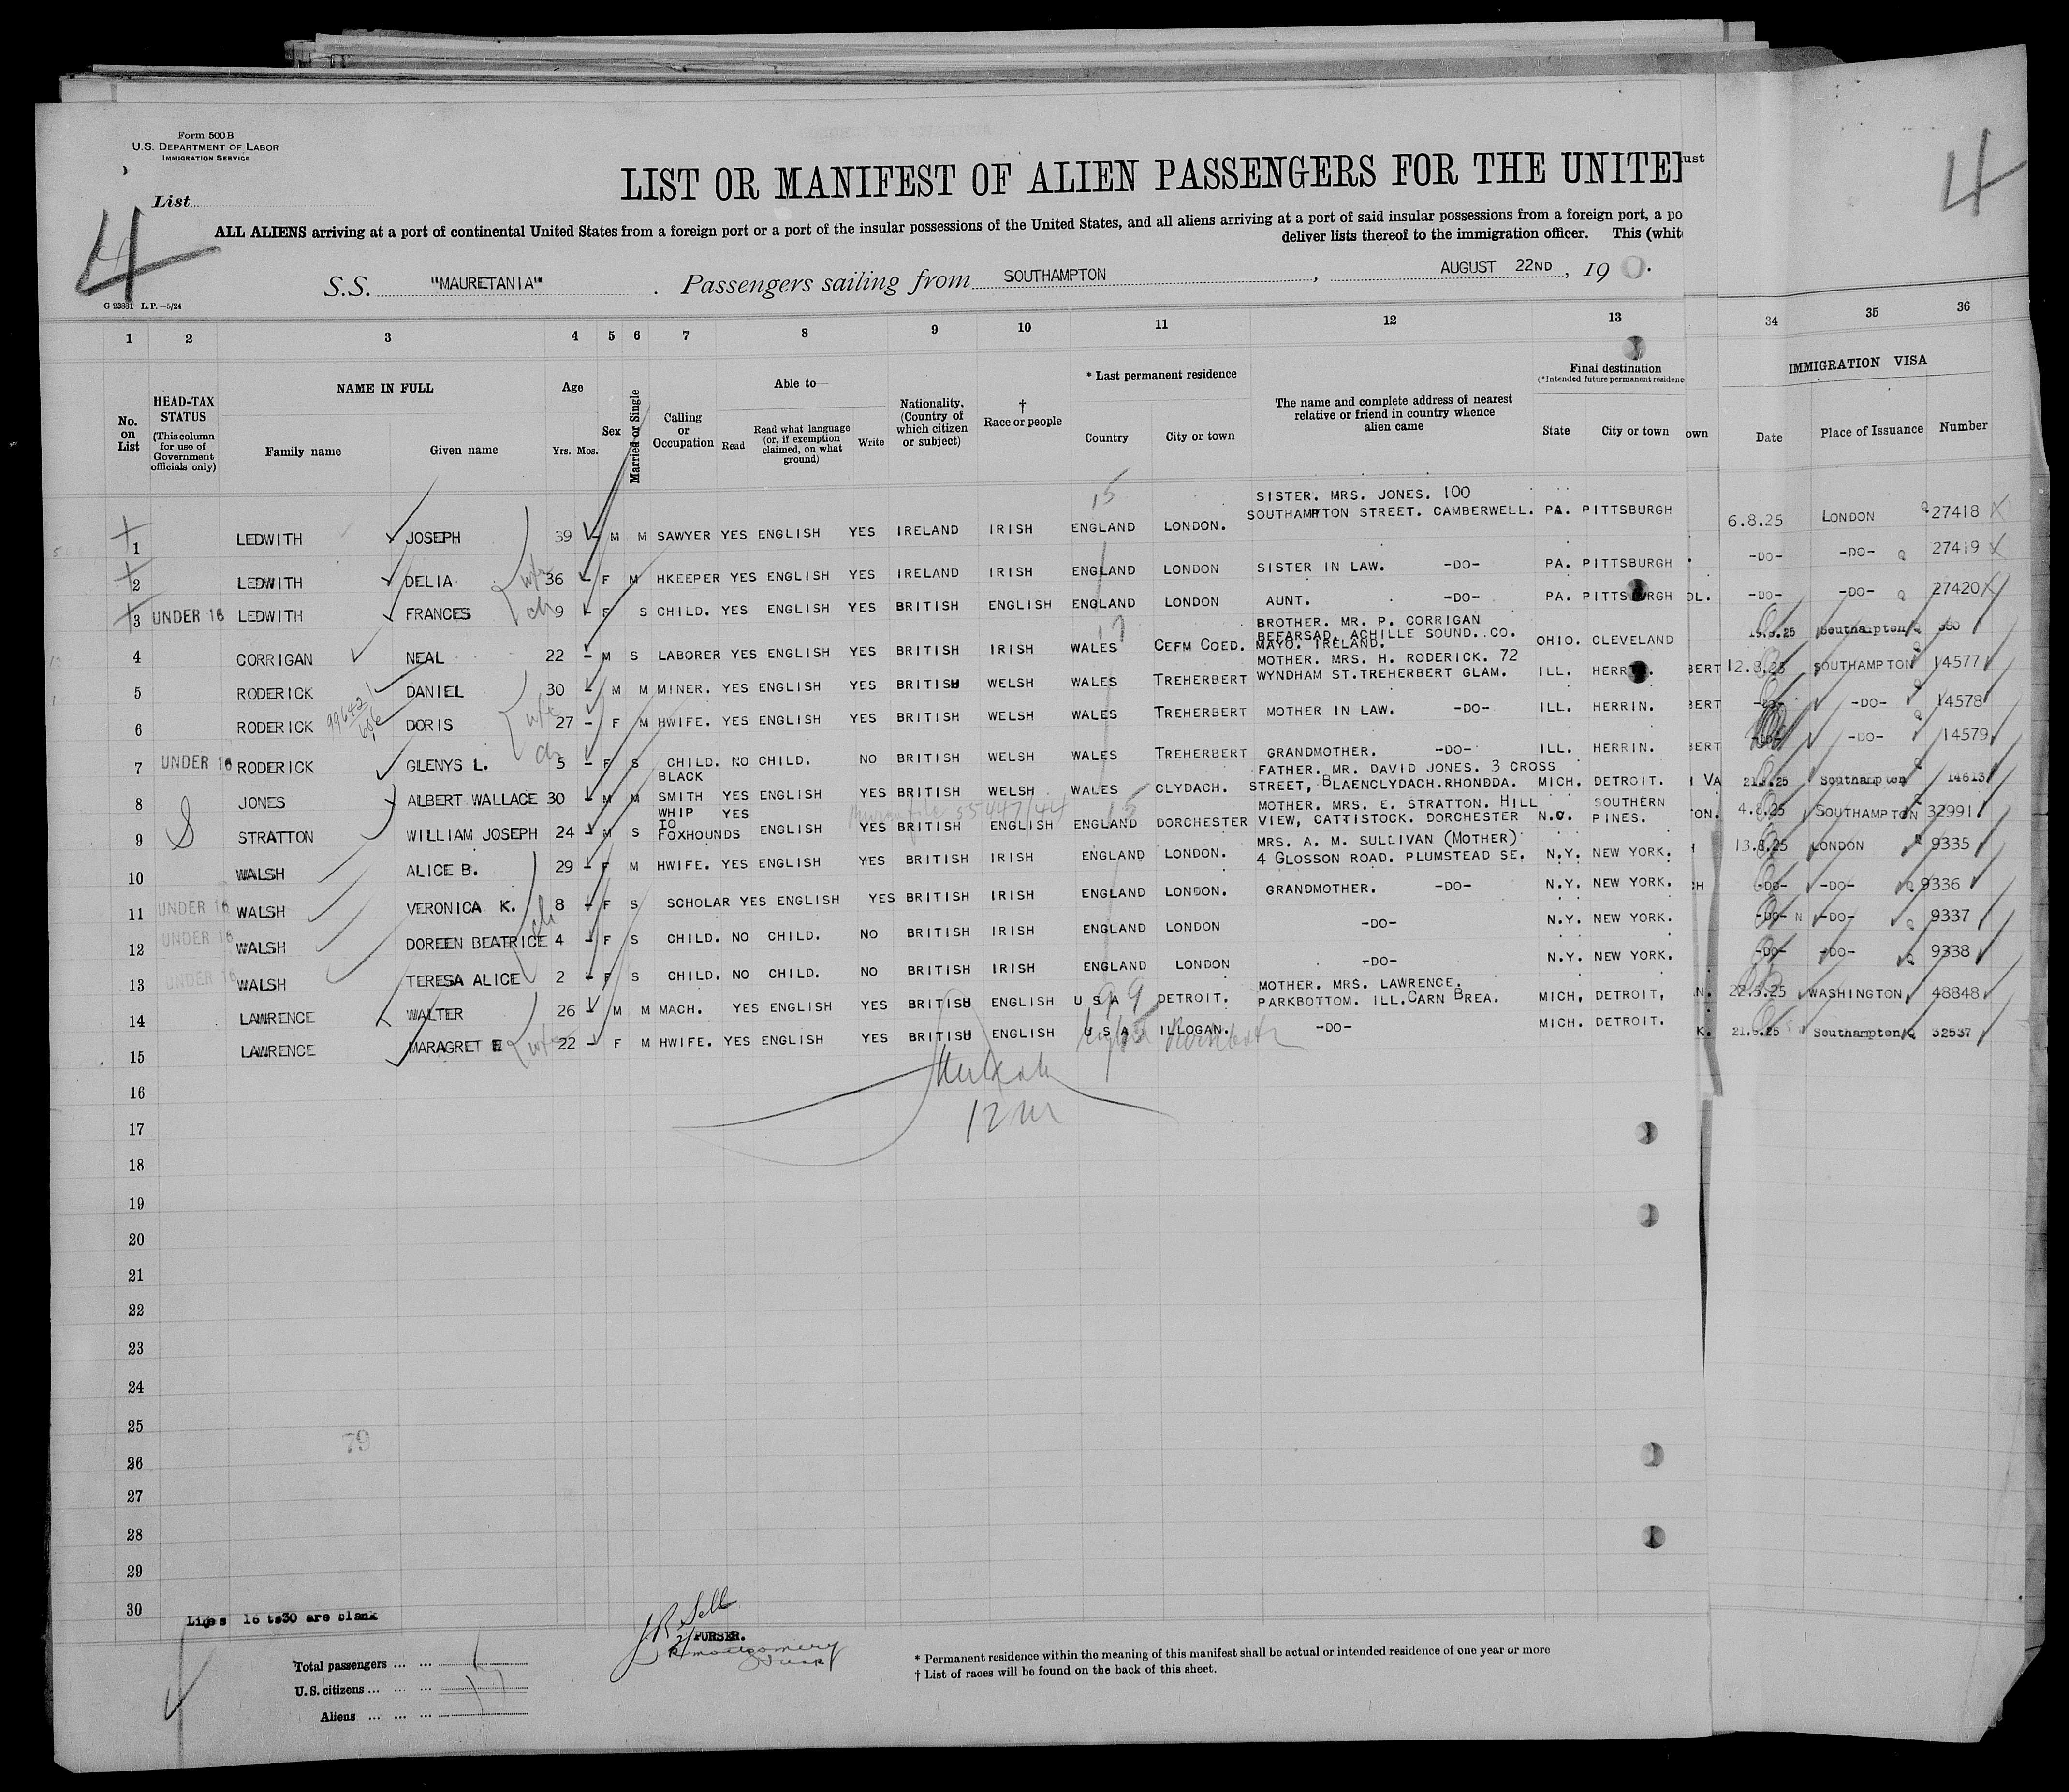 Form 500 B
U.S. DEPARTMENT OF LABOR
IMMIGRATION SERVICE
List
4
4
LIST OR MANIFEST OF ALIEN PASSENGERS FOR THE UNITE
ust
ALL ALIENS arriving at a port of continental United States from a foreign port or a port of the insular possessions of the United States, and all aliens arriving at a port of said insular possessions from a foreign port, a po
deliver lists thereof to the immigration officer. This (whit
S.S. "MAURETANIA" . Passengers sailing from SOUTHAMPTON , AUGUST 22ND , 19
G 23881 L.P.—5/24
1 2 3 4 5 6 7 8 9 10 11 12 13 34 35 36
No. on List
HEAD-TAX STATUS (This column for use of Government officials only)
NAME IN FULL Family name Given name
Age Yrs. Mos.
Sex
Married or Single
Calling or Occupation
Able to Read Read what language (or, if exemption claimed, on what ground) Write
Nationality, (Country of which citizen or subject)
† Race or people
* Last permanent residence Country City or town
The name and complete address of nearest relative or friend in country whence alien came
Final destination (*Intended future permanent residenc State City or town
own
IMMIGRATION VISA Date Place of Issuance Number
15
SISTER. MRS. JONES. 100
1 LEDWITH JOSEPH 39 - M M SAWYER YES ENGLISH YES IRELAND IRISH ENGLAND LONDON. SOUTHAMPTON STREET. CAMBERWELL. PA. PITTSBURGH 6.8.25 LONDON 27418
2 LEDWITH DELIA wife 36 - F M HKEEPER YES ENGLISH YES IRELAND IRISH ENGLAND LONDON SISTER IN LAW. -DO- PA. PITTSBURGH -DO- -DO- 27419
3 UNDER 16 LEDWITH FRANCES ch 9 - F S CHILD. YES ENGLISH YES BRITISH ENGLISH ENGLAND LONDON AUNT. -DO- PA. PITTSBURGH OL. -DO- -DO- 27420
BROTHER. MR. P. CORRIGAN
BEFARSAD. ACHILLE SOUND. CO.
4 CORRIGAN NEAL 22 - M S LABORER YES ENGLISH YES BRITISH IRISH WALES CEFM COED. MAYO. IRELAND. OHIO. CLEVELAND Southampton
MOTHER. MRS. H. RODERICK. 72
5 RODERICK DANIEL 30 - M M MINER. YES ENGLISH YES BRITISH WELSH WALES TREHERBERT WYNDHAM ST.TREHERBERT GLAM. ILL. HERRIN. BERT 12.8.25 SOUTHAMPTON 14577
6 RODERICK DORIS wife 27 - F M HWIFE. YES ENGLISH YES BRITISH WELSH WALES TREHERBERT MOTHER IN LAW. -DO- ILL. HERRIN. BERT -DO- -DO- 14578
7 UNDER 16 RODERICK GLENYS L. ch 5 - F S CHILD. NO CHILD. NO BRITISH WELSH WALES TREHERBERT GRANDMOTHER. -DO- ILL. HERRIN. BERT -DO- -DO- 14579
BLACK FATHER. MR. DAVID JONES. 3 CROSS
8 JONES ALBERT WALLACE 30 - M M SMITH YES ENGLISH YES BRITISH WELSH WALES CLYDACH. STREET, BLAENCLYDACH.RHONDDA. MICH. DETROIT. VA Southampton 14613
WHIP YES 55447/44 15 MOTHER. MRS. E. STRATTON. HILL SOUTHERN
9 S STRATTON WILLIAM JOSEPH 24 - M S TO FOXHOUNDS ENGLISH YES BRITISH ENGLISH ENGLAND DORCHESTER VIEW, CATTISTOCK. DORCHESTER N.C. PINES. TON. 4.8.25 SOUTHAMPTON 32991
MRS. A. M. SULLIVAN (MOTHER)
10 WALSH ALICE B. 29 - F M HWIFE. YES ENGLISH YES BRITISH IRISH ENGLAND LONDON. 4 GLOSSON ROAD. PLUMSTEAD SE. N.Y. NEW YORK. 13.8.25 LONDON 9335
11 UNDER 16 WALSH VERONICA K. 8 - F S SCHOLAR YES ENGLISH YES BRITISH IRISH ENGLAND LONDON. GRANDMOTHER. -DO- N.Y. NEW YORK. CH -DO- -DO- 9336
12 UNDER 16 WALSH DOREEN BEATRICE ch 4 - F S CHILD. NO CHILD. NO BRITISH IRISH ENGLAND LONDON -DO- N.Y. NEW YORK. -DO- N -DO- 9337
13 UNDER 16 WALSH TERESA ALICE 2 - F S CHILD. NO CHILD. NO BRITISH IRISH ENGLAND LONDON -DO- N.Y. NEW YORK. -DO- -DO- 9338
MOTHER. MRS. LAWRENCE.
14 LAWRENCE WALTER 26 - M M MACH. YES ENGLISH YES BRITISH ENGLISH U S A 99 DETROIT. PARKBOTTOM. ILL.CARN BREA. MICH, DETROIT, N. 22.5.25 WASHINGTON 48848
15 LAWRENCE MARAGRET E wife 22 - F M HWIFE. YES ENGLISH YES BRITISH ENGLISH U S A ILLOGAN. -DO- MICH. DETROIT. K. Southampton 32537
16
17
18
19
20
21
22
23
24
25
79
26
27
28
29
30
Lines 16 to30 are blank
PURSER.
Total passengers ... ...
U.S. citizens ... ... ...
Aliens ... ... ...
* Permanent residence within the meaning of this manifest shall be actual or intended residence of one year or more
† List of races will be found on the back of this sheet.